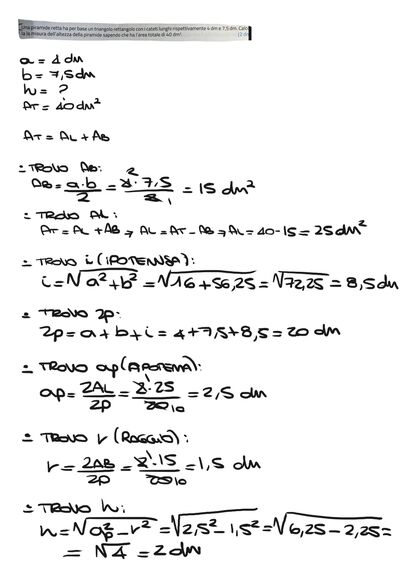 Una piramide retta ha per base un triangolo rettangolo con i cateti lunghi rispettivamente 4 dm e 7,5 dm. Calco
la la misura dell'altezza della piramide sapendo che ha l'area totale di 40 dm². [2 dm
a = 4 dm
b = 7,5 dm
h = ?
AT = 40 dm²
AT = AL + AB
= TROVO AB:
AB = a·b/2 = 4·7,5/2 = 2 1 = 15 dm²
= TROVO AL:
AT = AL + AB → AL = AT - AB → AL = 40-15 = 25 dm²
= TROVO i (IPOTENUSA):
i = √a²+b² = √16+56,25 = √72,25 = 8,5 dm
= TROVO 2p:
2p = a+b+i = 4+7,5+8,5 = 20 dm
= TROVO ap (APOTEMA):
ap = 2AL/2p = 2·25/20 = 1 10 = 2,5 dm
= TROVO r (RAGGIO):
r = 2AB/2p = 2·15/20 = 1 10 = 1,5 dm
= TROVO h:
h = √ap²-r² = √2,5²-1,5² = √6,25-2,25 =
= √4 = 2 dm